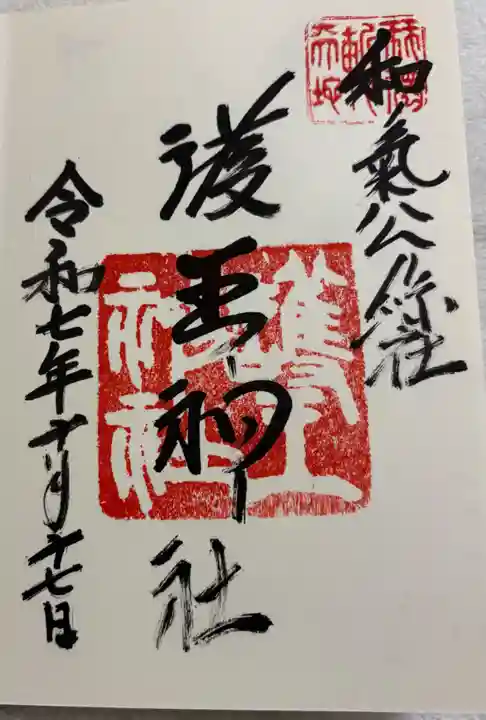 和氣公綜社
護王神社
令和七年十月十七日
護王神社